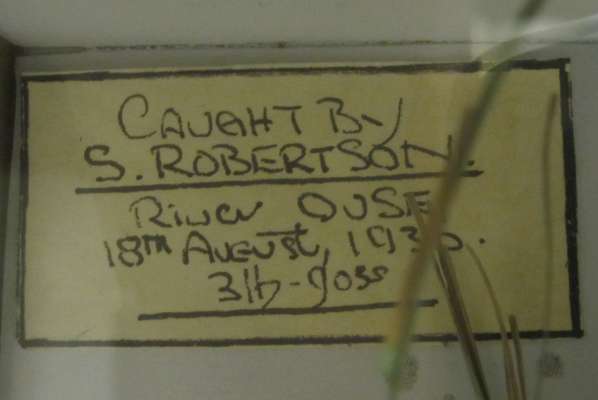 CAUGHT By
S. ROBERTSON.
RIVER OUSE
18TH AUGUST,
3lb-9ozs